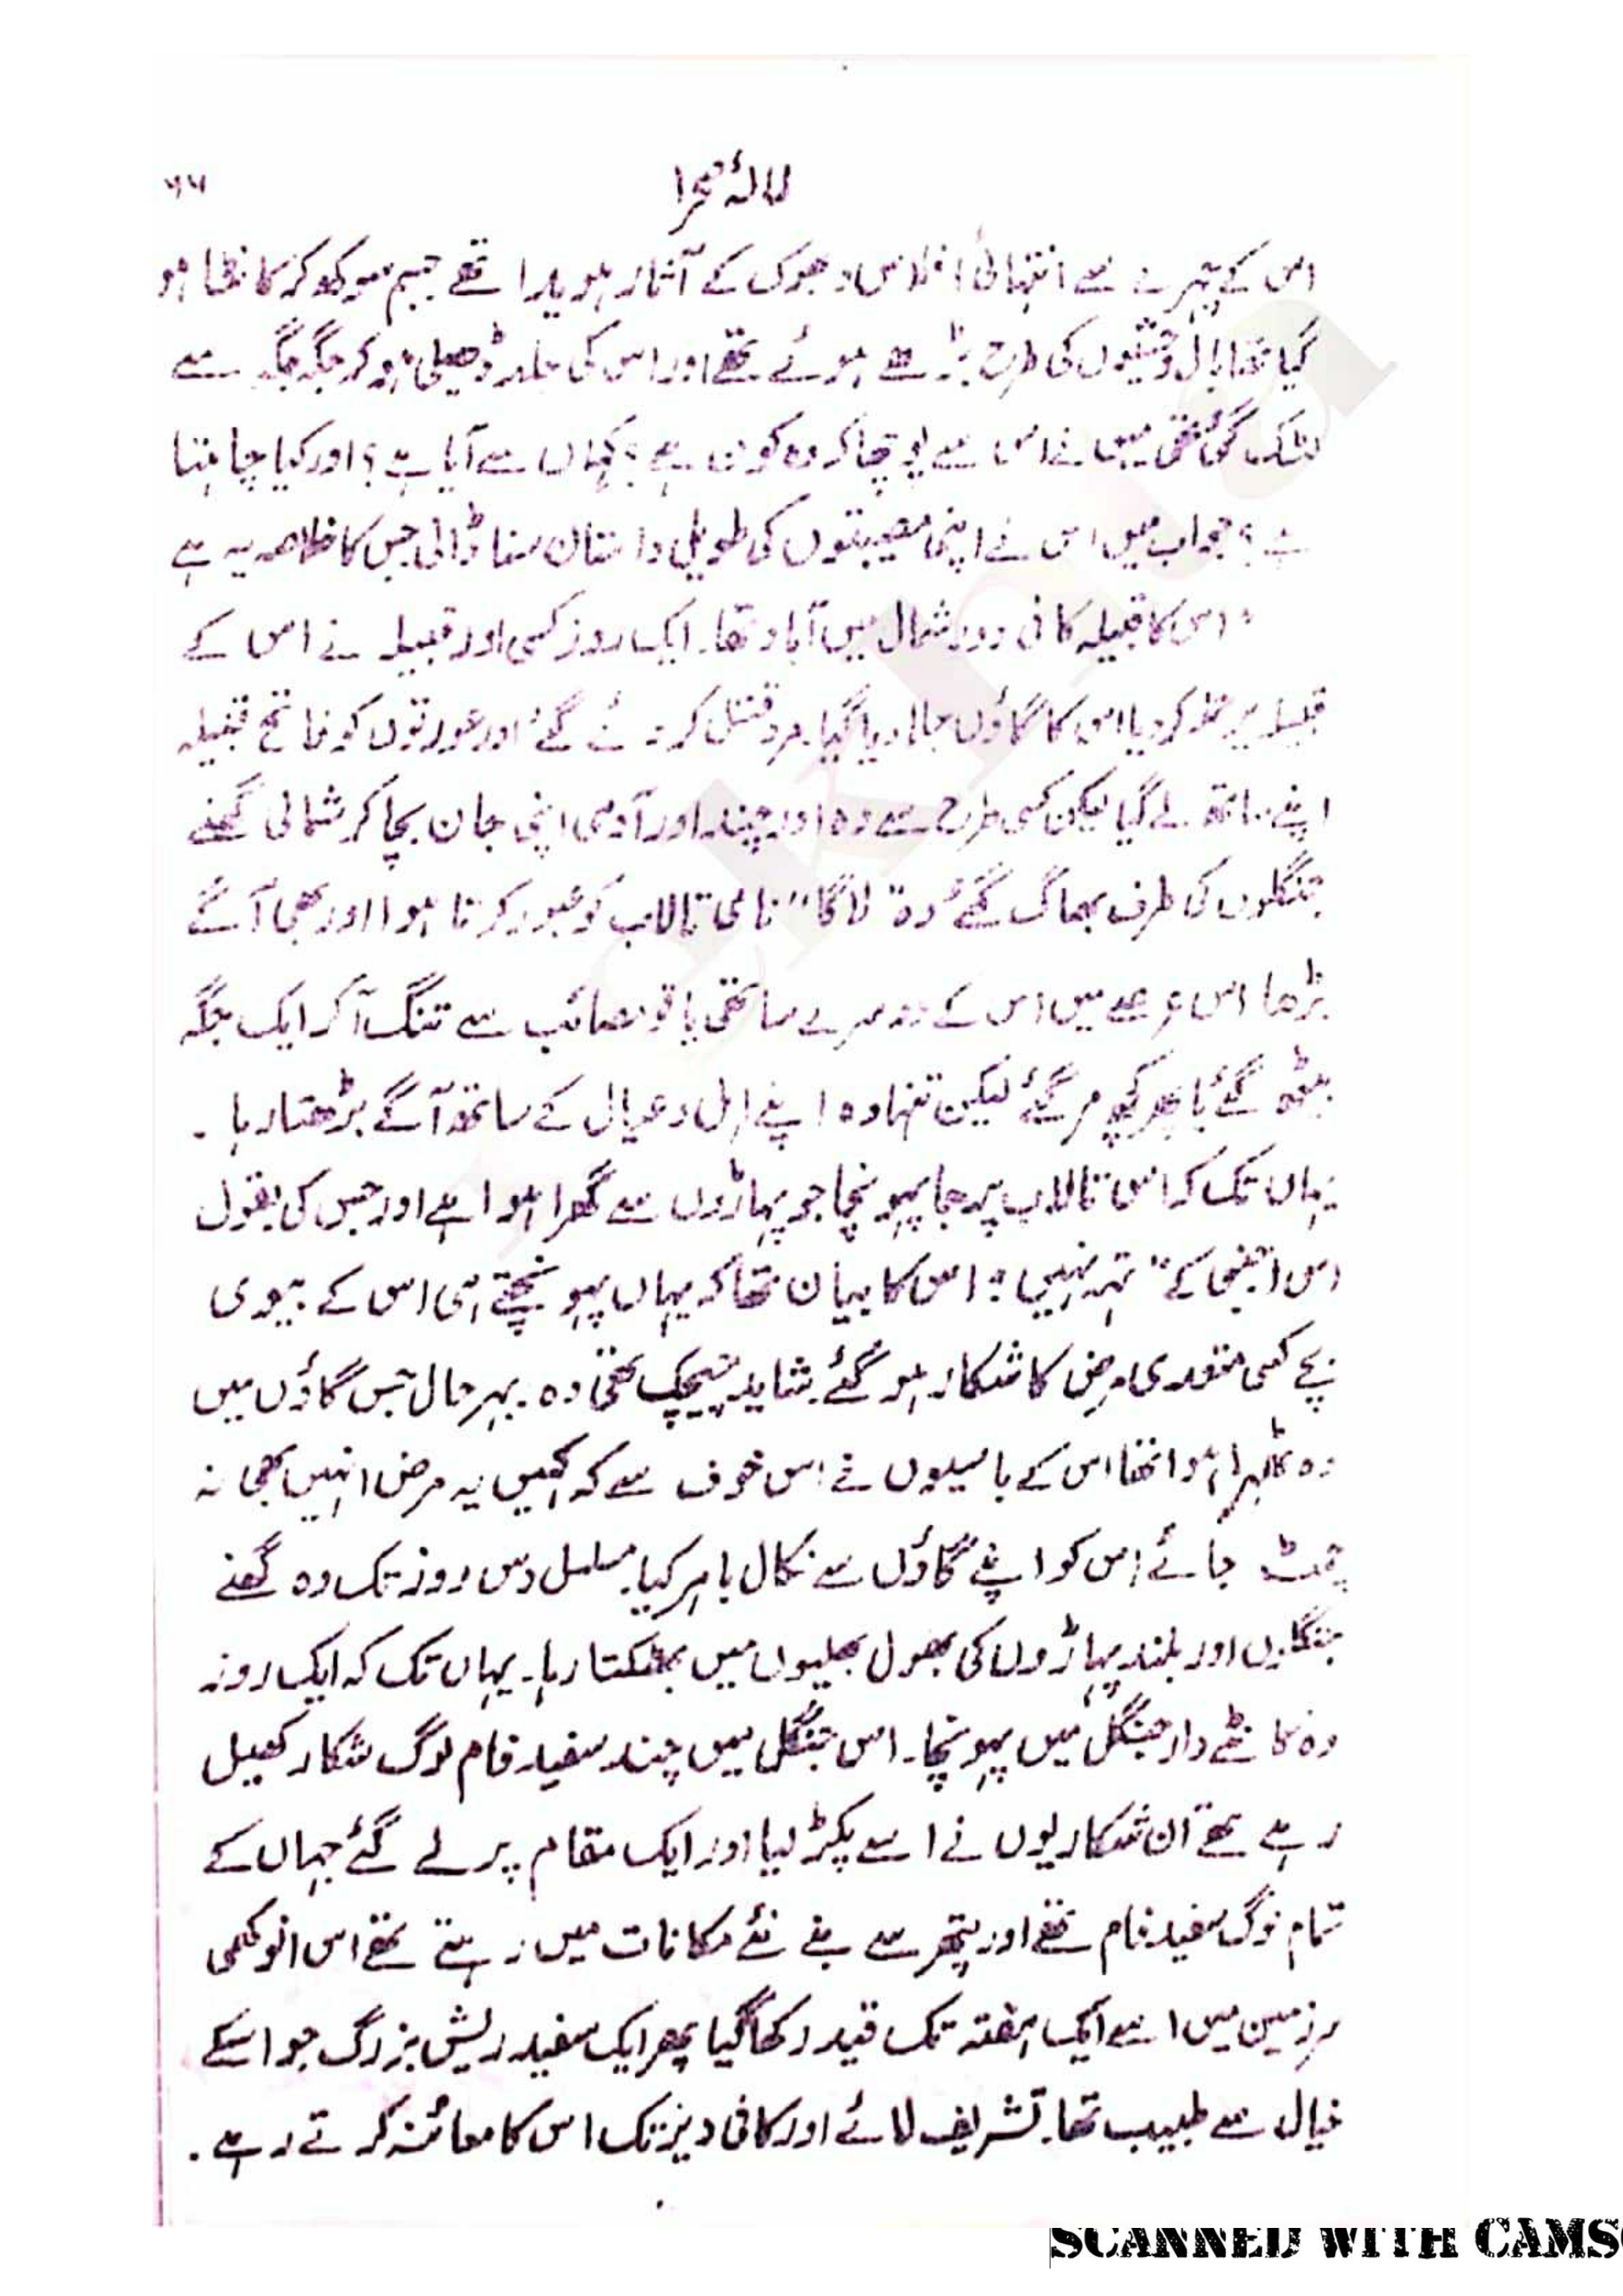 لالۂ صحرا
۶۶
اس کے چہرے سے انتہائی افلاس و بھوک کے آثار ہویدا تھے جسم سوکھ کر کانٹا ہو
گیا تھا بال وحشیوں کی طرح بڑھے ہوئے تھے اور اس کی جلد ڈھیلی ہو کر جگہ جگہ سے
لٹک گئی تھی میں نے اس سے پوچھا کہ وہ کون ہے؟ کہاں سے آیا ہے؟ اور کیا چاہتا
ہے؟ جواب میں اس نے اپنی مصیبتوں کی طویل داستان سنا ڈالی جس کا خلاصہ یہ ہے
"اس کا قبیلہ کافی دور شمال میں آباد تھا۔ ایک روز کسی اور قبیلہ نے اس کے
قبیلہ پر حملہ کر دیا اس کا گاؤں جلا دیا گیا۔ مرد قتل کر دئے گئے اور عورتوں کو فاتح قبیلہ
اپنے ساتھ لے گیا لیکن کسی طرح سے وہ اور چند اور آدمی اپنی جان بچا کر شمالی گھنے
جنگلوں کی طرف بھاگ گئے وہ "لاگا" نامی تالاب کو عبور کرتا ہوا اور بھی آگے
بڑھا اس عرصے میں اس کے دوسرے ساتھی یا تو مصائب سے تنگ آ کر ایک جگہ
بیٹھ گئے یا پھر کچھ مر گئے لیکن تنہا وہ اپنے اہل و عیال کے ساتھ آگے بڑھتا رہا۔
یہاں تک کہ اس تالاب پر جا پہونچا جو پہاڑوں سے گھرا ہوا ہے اور جس کی بقول
اس اجنبی کے "تہہ نہیں" اس کا بیان تھا کہ یہاں پہونچتے ہی اس کے بیوی
بچے کسی متعدی مرض کا شکار ہو گئے۔ شاید چیچک تھی وہ۔ بہرحال جس گاؤں میں
وہ ٹھہرا ہوا تھا اس کے باسیوں نے اس خوف سے کہ کہیں یہ مرض انہیں بھی نہ
چمٹ جائے اس کو اپنے گاؤں سے نکال باہر کیا۔ مسلسل دس روز تک وہ گھنے
جنگلوں اور بلند پہاڑوں کی بھول بھلیوں میں بھٹکتا رہا۔ یہاں تک کہ ایک روز
وہ کانٹے دار جنگل میں پہونچا۔ اس جنگل میں چند سفید فام لوگ شکار کھیل
رہے تھے ان شکاریوں نے اسے پکڑ لیا اور ایک مقام پر لے گئے جہاں کے
تمام لوگ سفید فام تھے اور پتھر سے بنے نئے مکانات میں رہتے تھے اس انوکھی
سرزمین میں اسے ایک ہفتہ تک قید رکھا گیا پھر ایک سفید ریش بزرگ جو اسکے
خیال سے طبیب تھا۔ تشریف لائے اور کافی دیر تک اس کا معائنہ کرتے رہے۔
SCANNED WITH CAMS